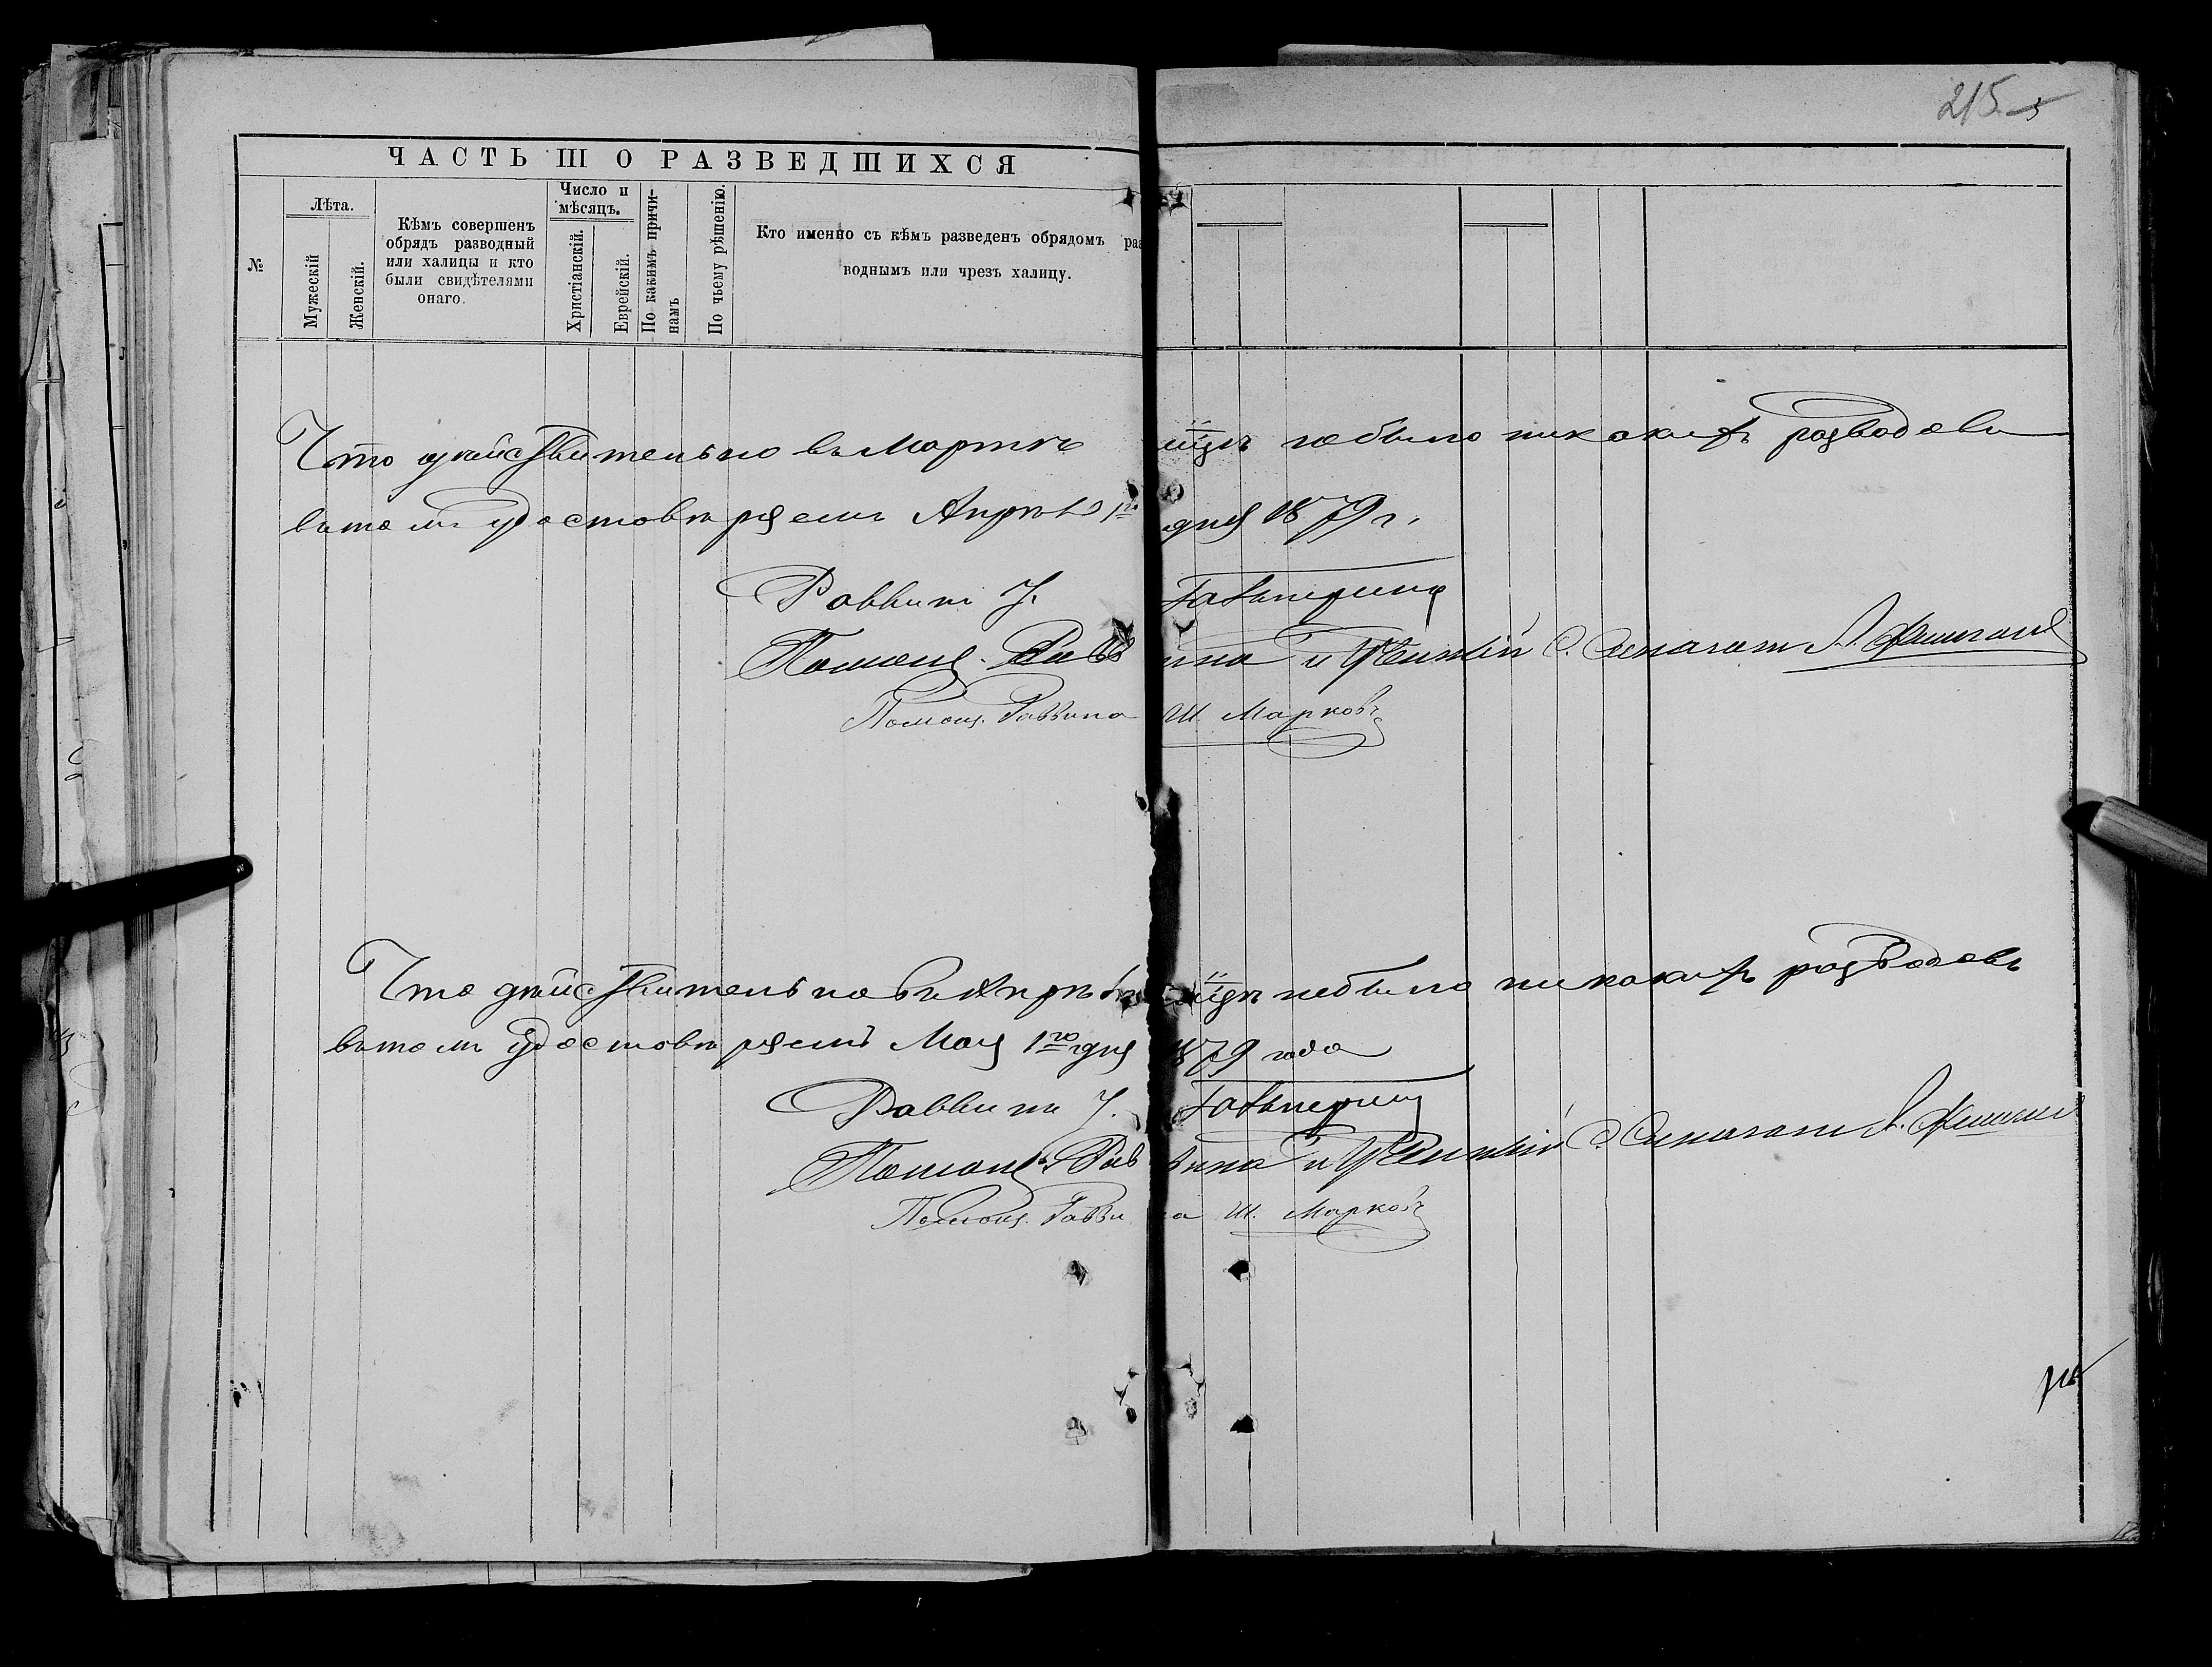 215
ЧАСТЬ III О РАЗВЕДШИХСЯ
№
Лѣта.
Мужескій
Женскій.
Кѣмъ совершенъ
обрядъ разводный
или халицы и кто
были свидѣтелями
онаго.
Число и
мѣсяцъ.
Христіанскій.
Еврейскій.
По какимъ причи-
намъ
По чьему рѣшенію.
Кто именно съ кѣмъ разведенъ обрядомъ раз
воднымъ или чрезъ халицу.
Что дѣйствительно въ Мартѣ мцѣ небыло никакихъ разводовъ
въ томъ удостовѣряемъ Апрѣля 1го дня 1879 г.
Раввинъ
Помощ. Раввина и
Помощ. Раввина Ш. Марковъ
Что дѣйствительно въ Апрѣлѣ мцѣ небыло никакихъ разводовъ
въ томъ удостовѣряемъ Мая 1го дня 1879 года
Раввинъ
Помощ. Раввина и
Помощ. Раввина Ш. Марковъ